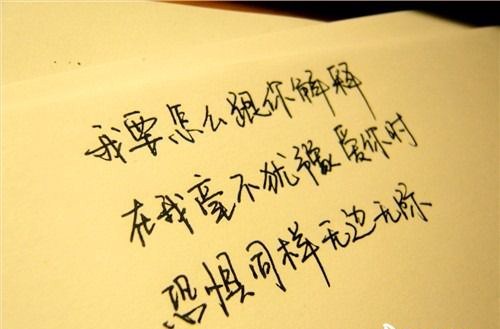 我要怎么跟你解释
在我毫不犹豫爱你时
恐惧同样无边无际